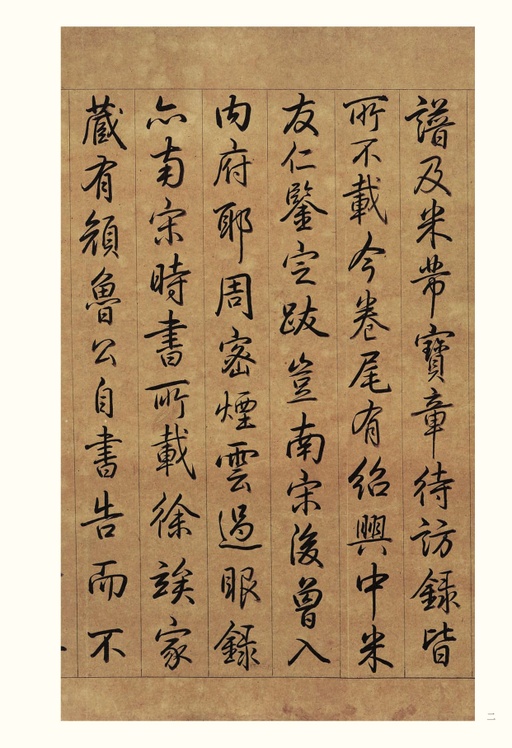 譜及米芾寶章待訪錄皆
所不載今卷尾有紹興中米
友仁鑒定跋豈南宋後曾入
内府耶周密煙雲過眼錄
亦南宋時書所載徐竢家
藏有顏魯公自書告而不
二